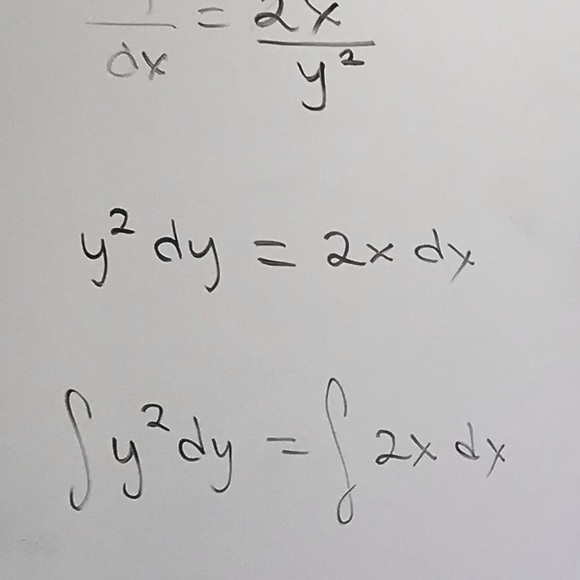 /dx = 2x/y²
y² dy = 2x dx
∫ y² dy = ∫ 2x dx